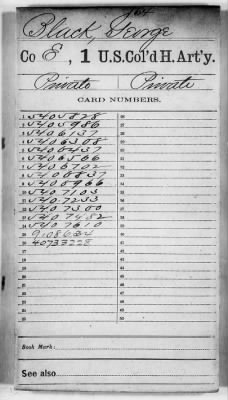 164
Black, George
Co E, 1 U.S.Col'd H. Art'y.
Private Private
CARD NUMBERS.
1 5405828 26
2 5405986 27
3 5406137 28
4 5406308 29
5 5406437 30
6 5406566 31
7 5406702 32
8 5406837 33
9 5406966 34
10 5407103 35
11 5407233 36
12 5407350 37
13 5407482 38
14 5407610 39
15 40
16 40733228 41
17 42
18 43
19 44
20 45
21 46
22 47
23 48
24 49
25 50
Book Mark:
See also